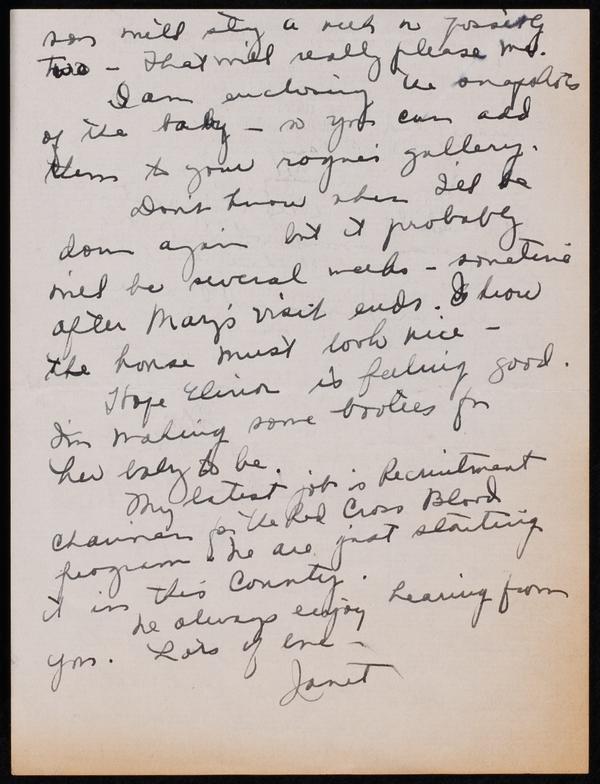 son will stay a week or possibly
two - that will really please me.
I am enclosing the snapshots
of the baby - so you can add
them to your rogue's gallery.
Don't know when I'll be
down again but it probably
will be several weeks - sometime
after Mary's visit ends. I know
the house must look nice -
Hope Elinor is feeling good.
I'm making some booties for
her baby to be.
My latest job is Recruitment
Chairman for the Red Cross Blood
program. We are just starting
it in this County.
We always enjoy hearing from
you. Lots of love -
Janet